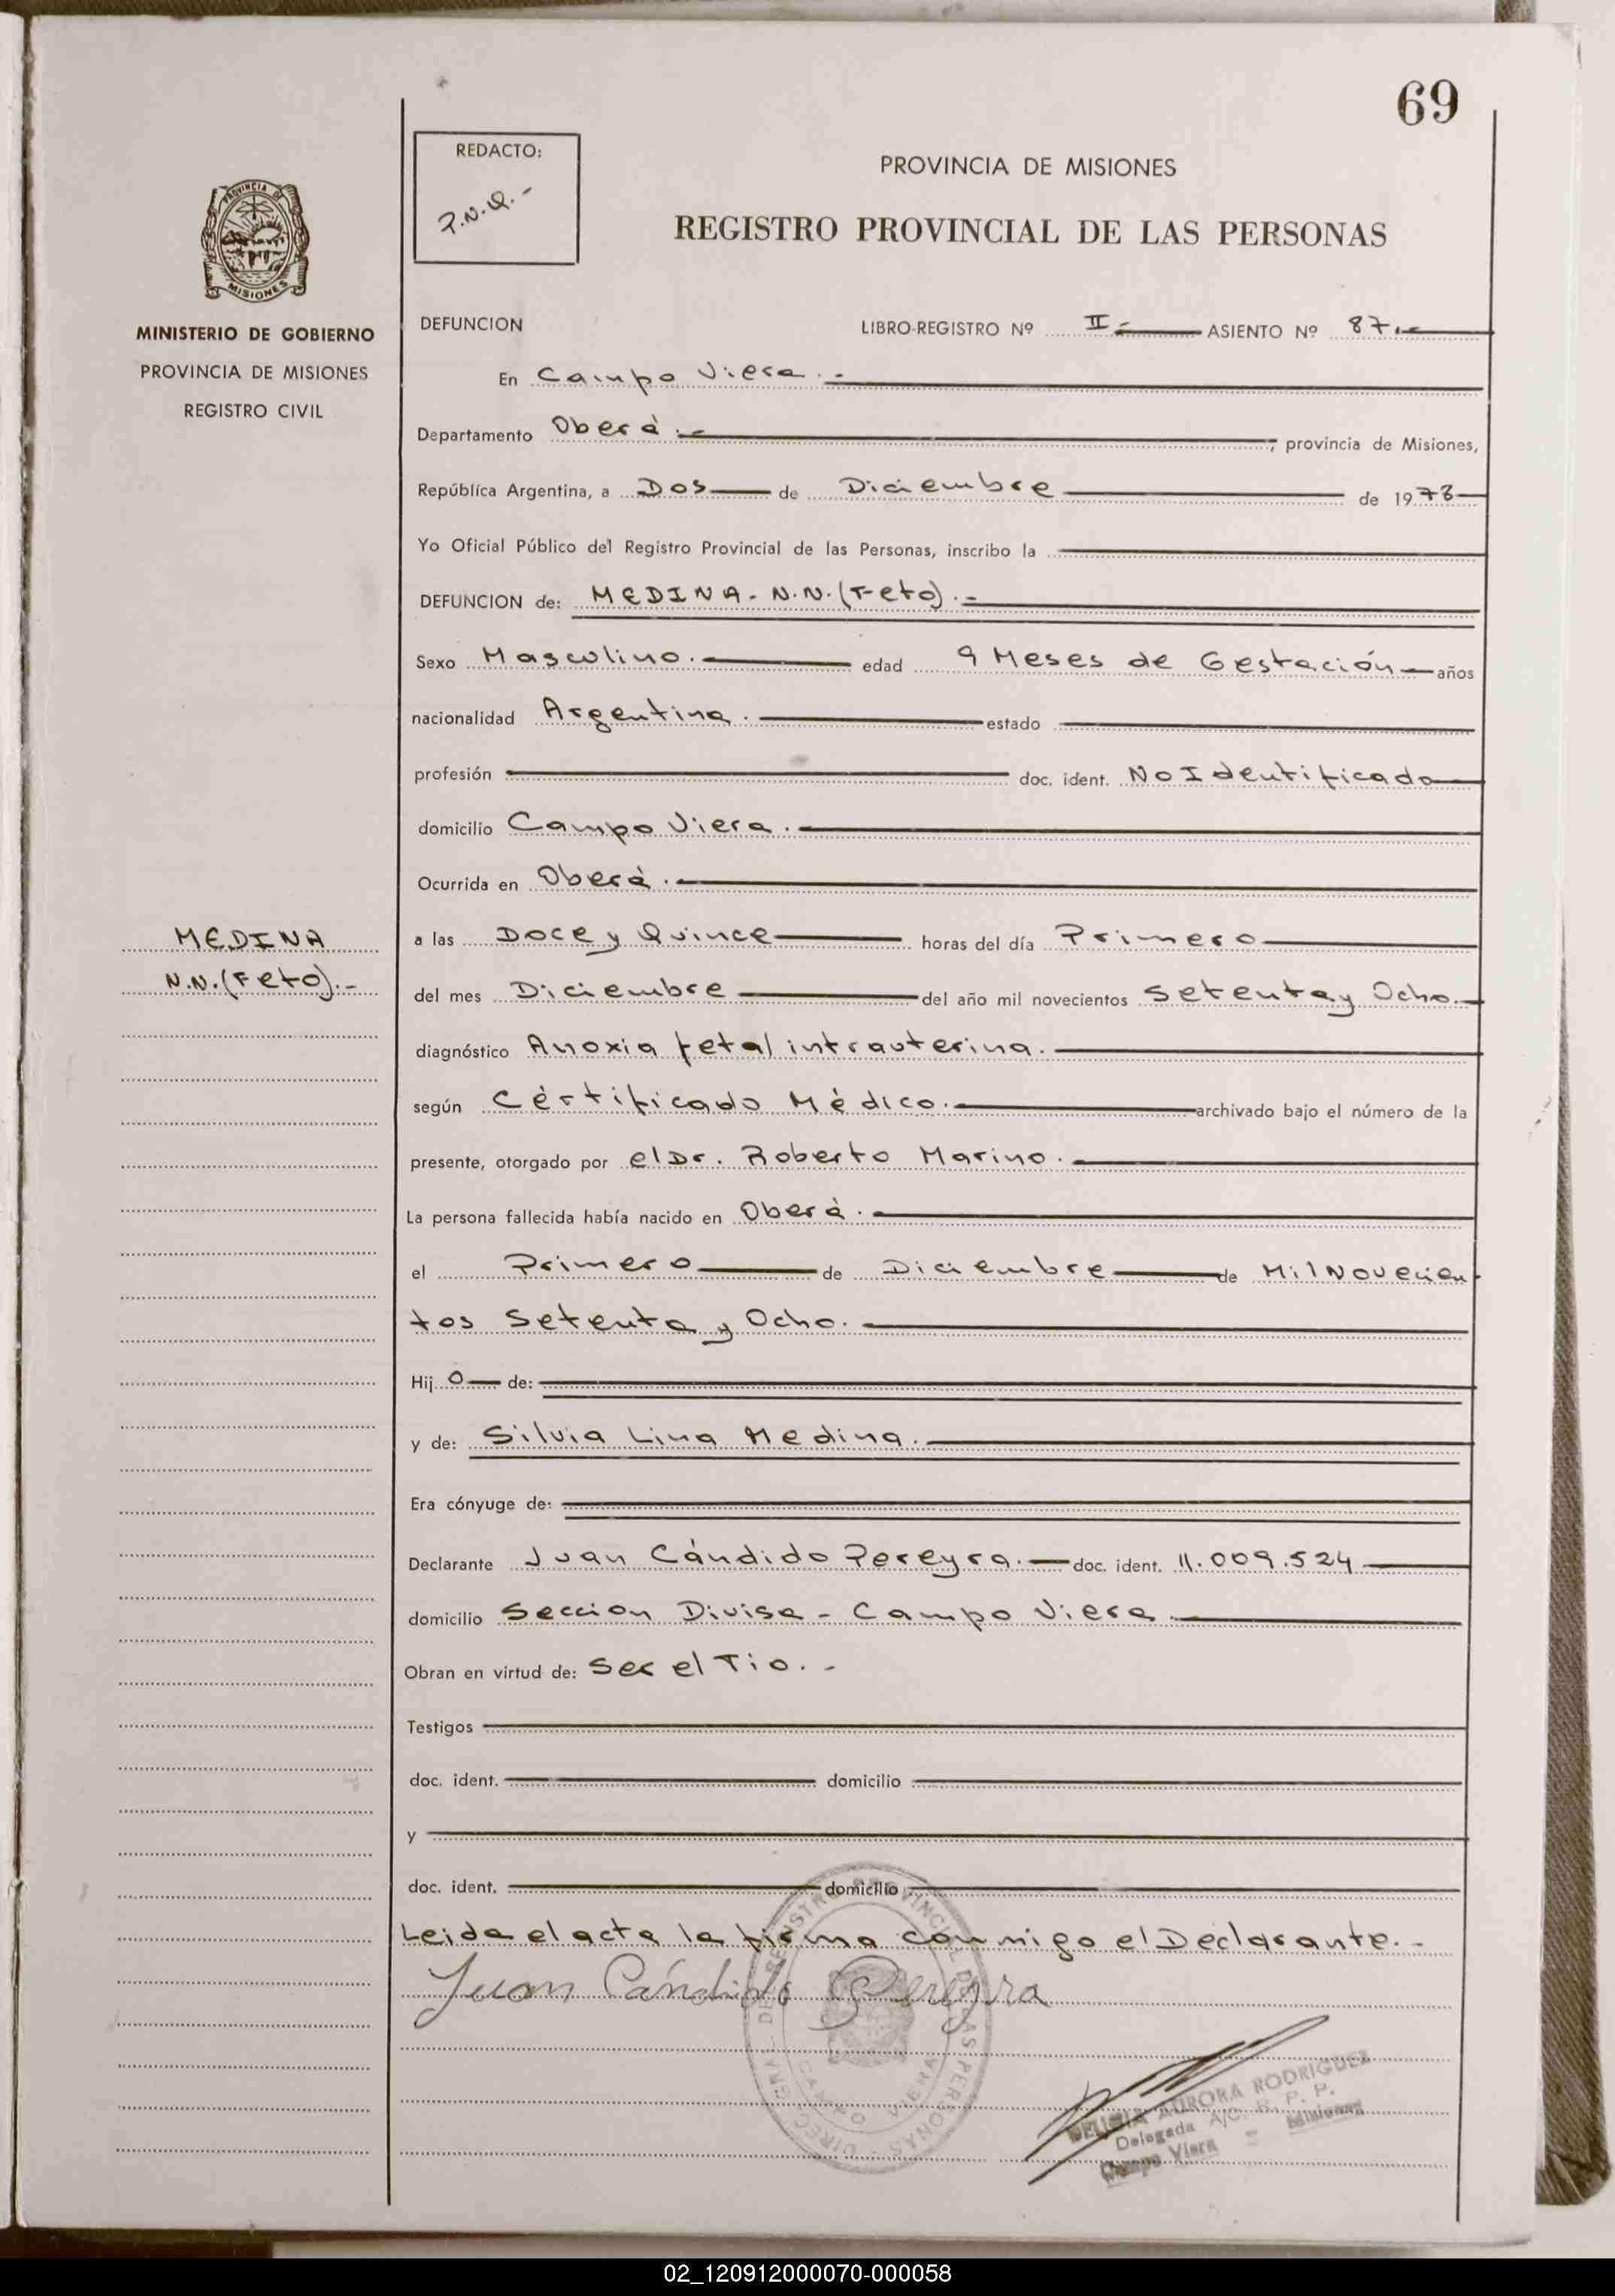 69
REDACTO:
P.N.Q.-
PROVINCIA DE MISIONES
REGISTRO PROVINCIAL DE LAS PERSONAS
PROVINCIA DE
MISIONES
MINISTERIO DE GOBIERNO
PROVINCIA DE MISIONES
REGISTRO CIVIL
MEDINA
N.N.(Feto).-
DEFUNCION LIBRO-REGISTRO Nº II- ASIENTO Nº 87.-
En Campo Viera.-
Departamento Oberà.- , provincia de Misiones,
República Argentina, a Dos de Diciembre de 1978
Yo Oficial Público del Registro Provincial de las Personas, inscribo la
DEFUNCION de: MEDINA- N.N.(Feto).-
Sexo Masculino. edad 9 Meses de Gestación años
nacionalidad Argentina. estado
profesión doc. ident. No Identificado
domicilio Campo Viera.
Ocurrida en Oberà.
a las Doce y Quince horas del día Primero
del mes Diciembre del año mil novecientos Setenta y Ocho.
diagnóstico Anoxia fetal intrauterina.
según Cèrtificado Mèdico. archivado bajo el número de la
presente, otorgado por el Dr. Roberto Marino.
La persona fallecida había nacido en Oberà.
el Primero de Diciembre de Mil Novecien
tos Setenta y Ocho.
Hij o de:
y de: Silvia Lina Medina.
Era cónyuge de:
Declarante Juan Cándido Pereyra. doc. ident. 11.009.524
domicilio Seccion Divisa - Campo Viera.
Obran en virtud de: Ser el Tio.-
Testigos
doc. ident. domicilio
y
doc. ident. domicilio
Leida el acta la firma conmigo el Declarante.-
Juan Cándido Pereyra
CAMPO VIERA
AURORA RODRIGUEZ
Delegada A/C. R. P. P.
Campo Viera - Misiones
02_120912000070-000058